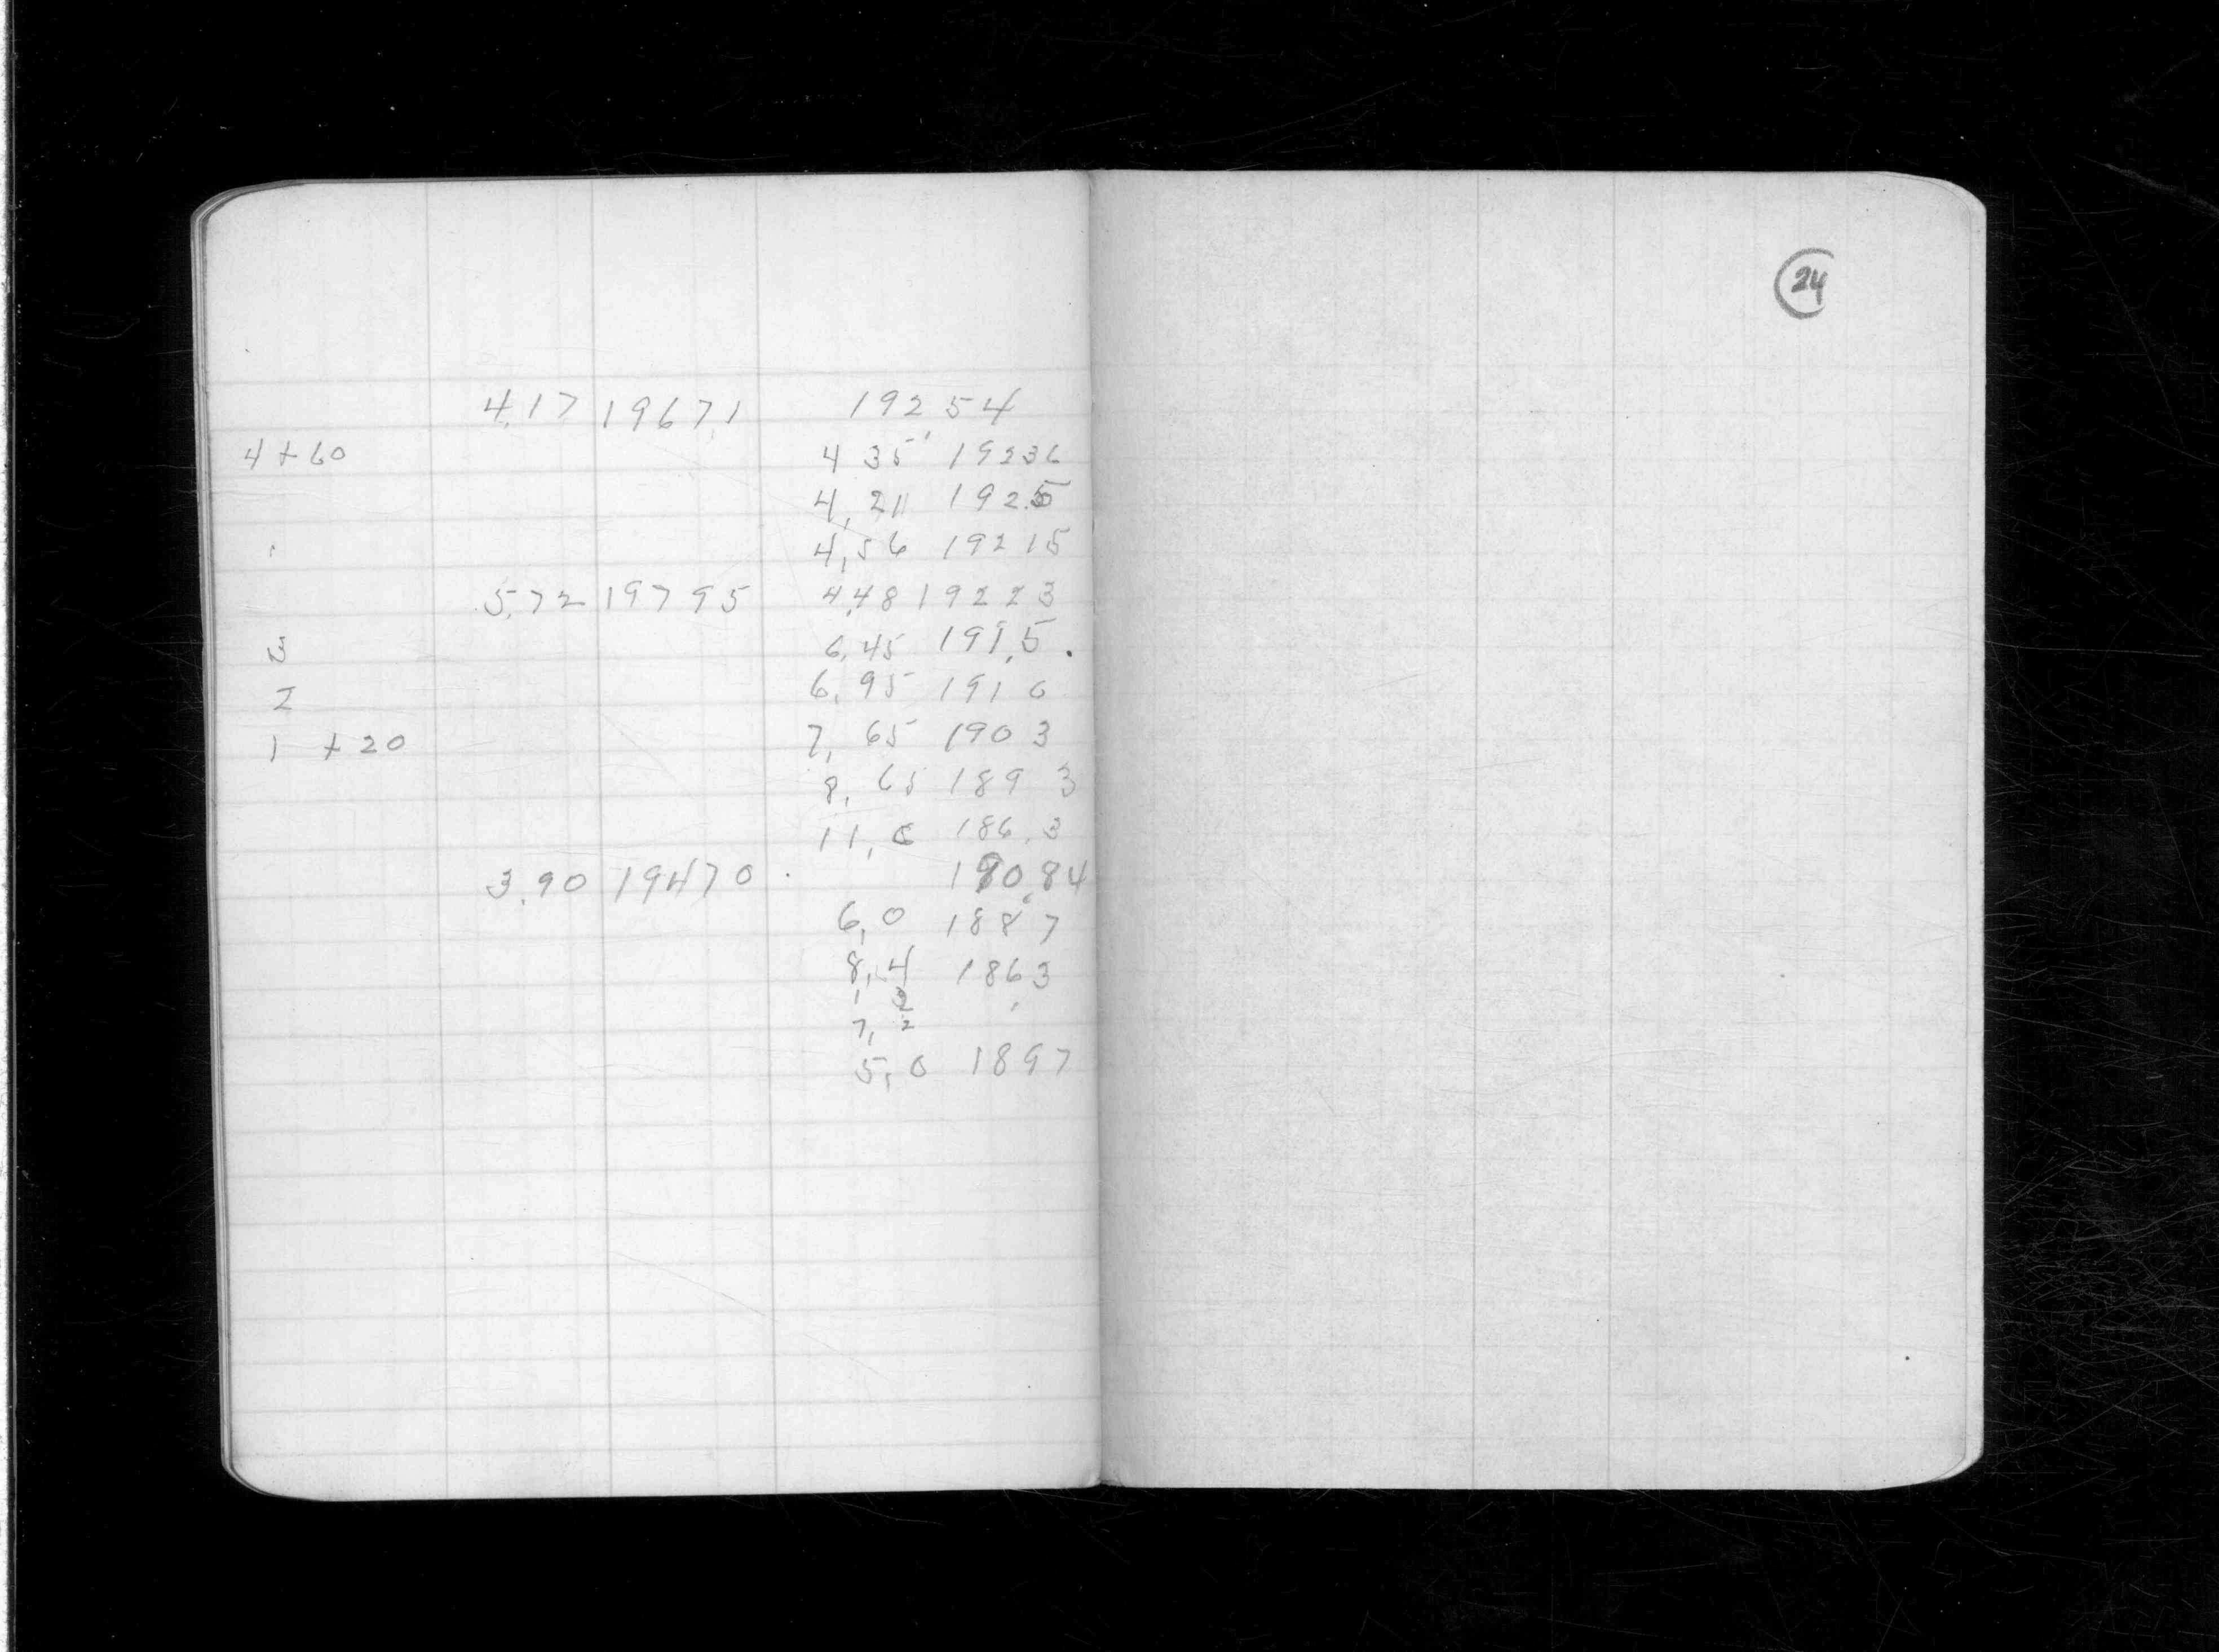 24
4.17 19671 192.54
4+60 4 35 19236
4.21 192.5
4.56 19215
5.72 19795 4.48 19223
3 6.45 191.5
2 6.95 191 0
1 +20 7.65 190 3
8.65 189 3
11.6 186.3
3.90 19470 190.84
6.0 188 7
8.4 186 3
7.2
5.0 189 7